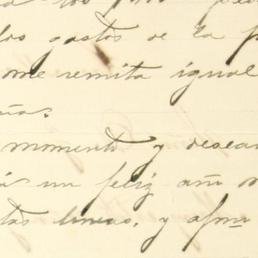 los gastos de la p
me remita igual
momento y desea
un feliz año n
tas lineas, y afmo